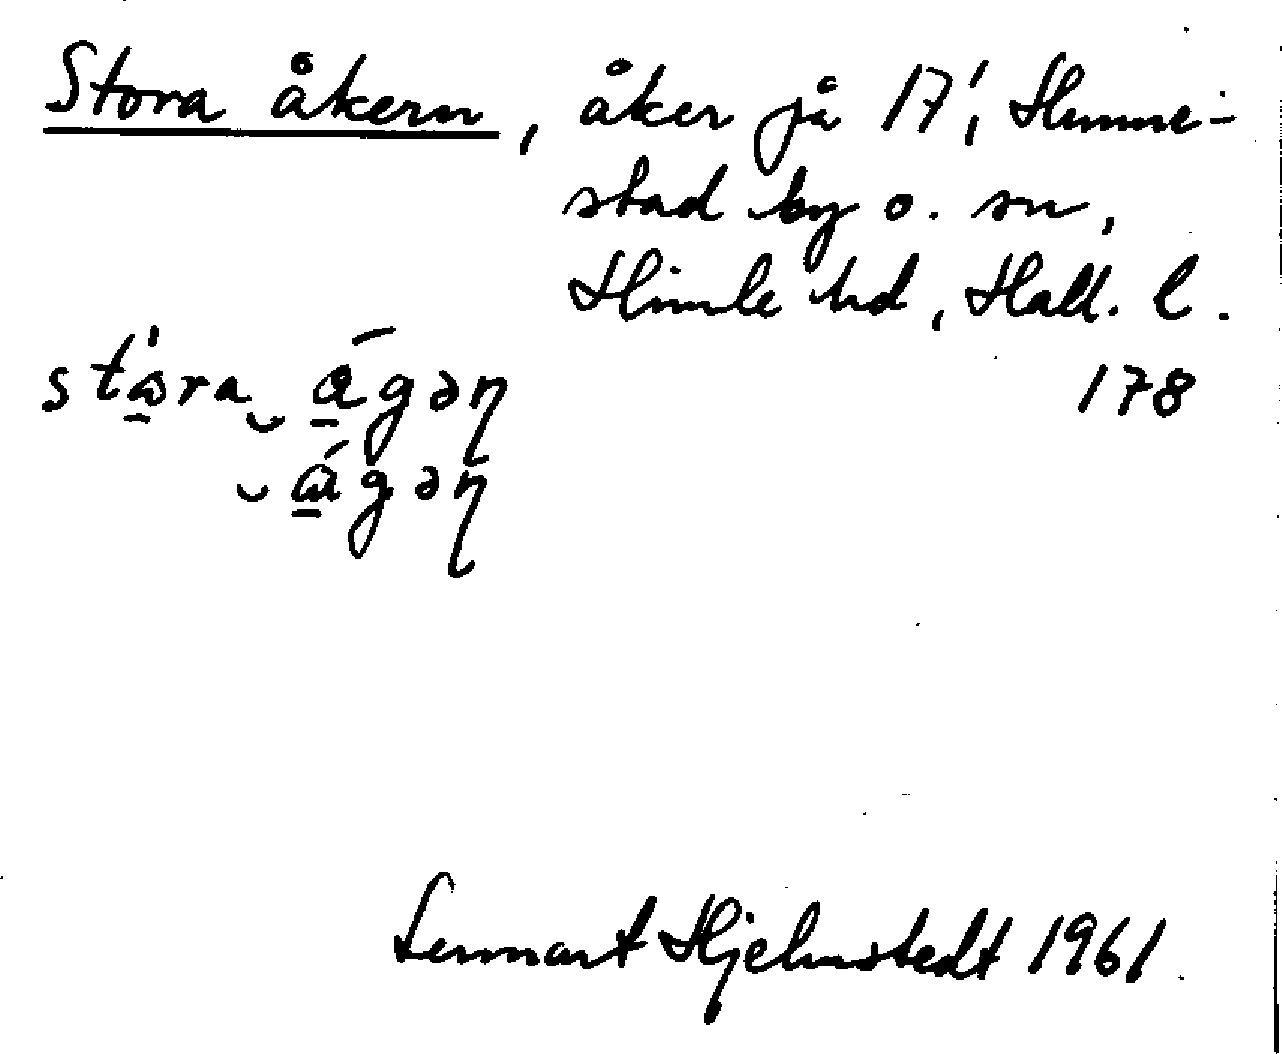 Stora åkern, åker på 17', Hunne-
stad by o. sn,
Himle hd, Hall. l.
178
Lennart Hjelmstedt 1961